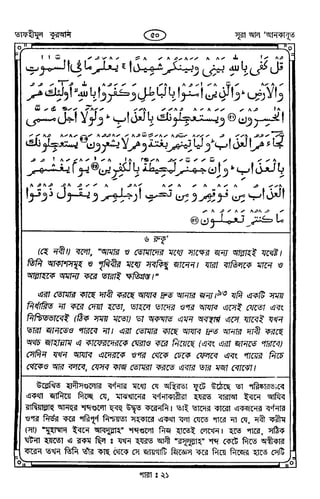 তাফহীমুল কুরআন
৫০
সূরা আল 'আনকাবূত
قُلْ كَفَىٰ بِاللَّهِ بَيْنِي وَبَيْنَكُمْ شَهِيدًا ۚ يَعْلَمُ مَا فِي السَّمَٰوَٰتِ
وَالْأَرْضِ ۗ وَالَّذِينَ آمَنُوا بِالْبَاطِلِ وَكَفَرُوا بِاللَّهِ ۙ أُولَٰئِكَ هُمُ
الْخَٰسِرُونَ ۝ وَيَسْتَعْجِلُونَكَ بِالْعَذَابِ ۚ وَلَوْلَا أَجَلٌ مُّسَمًّى
لَّجَاءَهُمُ الْعَذَابُ ۚ وَلَيَأْتِيَنَّهُم بَغْتَةً وَهُمْ لَا يَشْعُرُونَ ۝ يَسْتَعْجِلُونَكَ
بِالْعَذَابِ ۚ وَإِنَّ جَهَنَّمَ لَمُحِيطَةٌ بِالْكَٰفِرِينَ ۝ يَوْمَ يَغْشَىٰهُمُ
الْعَذَابُ مِن فَوْقِهِمْ وَمِن تَحْتِ أَرْجُلِهِمْ وَيَقُولُ ذُوقُوا
مَا كُنتُمْ تَعْمَلُونَ ۝
৬ রুকূ'
(হে নবী!) বলো, "আমার ও তোমাদের মধ্যে সাক্ষের জন্য আল্লাহই যথেষ্ট।
তিনি আকাশসমূহ ও পৃথিবীর মধ্যে সবকিছু জানেন। যারা বাতিলকে মানে ও
আল্লাহকে অমান্য করে তারাই ক্ষতিগ্রস্ত।"
এরা তোমার কাছে দাবী করছে আযাব দ্রুত আনার জন্য। যদি একটি সময়
নির্ধারিত না করে দেয়া হতো, তাহলে তাদের ওপর আযাব এসেই যেতো এবং
নিশ্চিতভাবেই (ঠিক সময় মতো) তা অকস্মাত এমন অবস্থায় এসে যাবেই যখন
তারা জানতেও পারবে না। এরা তোমার কাছে আযাব দ্রুত আনার দাবী করছে
অথচ জাহান্নাম এ কাফেরদেরকে ঘেরাও করে নিয়েছে (এবং এরা জানতে পারবে)
সেদিন যখন আযাব এদেরকে ওপর থেকে ঢেকে ফেলবে এবং পায়ের নিচে
থেকেও আর বলবে, যেসব কাজ তোমরা করতে এবার তার মজা বোঝো।
উল্লেখিত হাদীসগুলোর বর্ণনার মধ্যে যে অস্থিরতা ফুটে উঠেছে তা পরিষ্কারভাবে
একথা জানিয়ে দিচ্ছে যে, মাঝখানের বর্ণনাকারীরা হযরত বারাআ ইবনে আযিব
রাদিয়াল্লাহু আনহুর শব্দগুলো হুবহু উদ্ধৃত করেননি। তাই তাদের কারো একজনের বর্ণনার
ওপর নির্ভর করে পরিপূর্ণ নিশ্চয়তা সহকারে একথা বলা যেতে পারে না যে, নবী করীম
(সা) "মুহাম্মাদ ইবনে আবদুল্লাহ" শব্দগুলো নিজ হাতেই লেখেন। হতে পারে, সঠিক
ঘটনা হয়তো এ রকম ছিল : যখন হযরত আলী "রসূলুল্লাহ" শব্দ কেটে দিতে অস্বীকার
করেন তখন তিনি তাঁর কাছ থেকে সে জায়গাটি জিজ্ঞেস করে নিয়ে নিজের হাতে সেটি
পারা : ২১